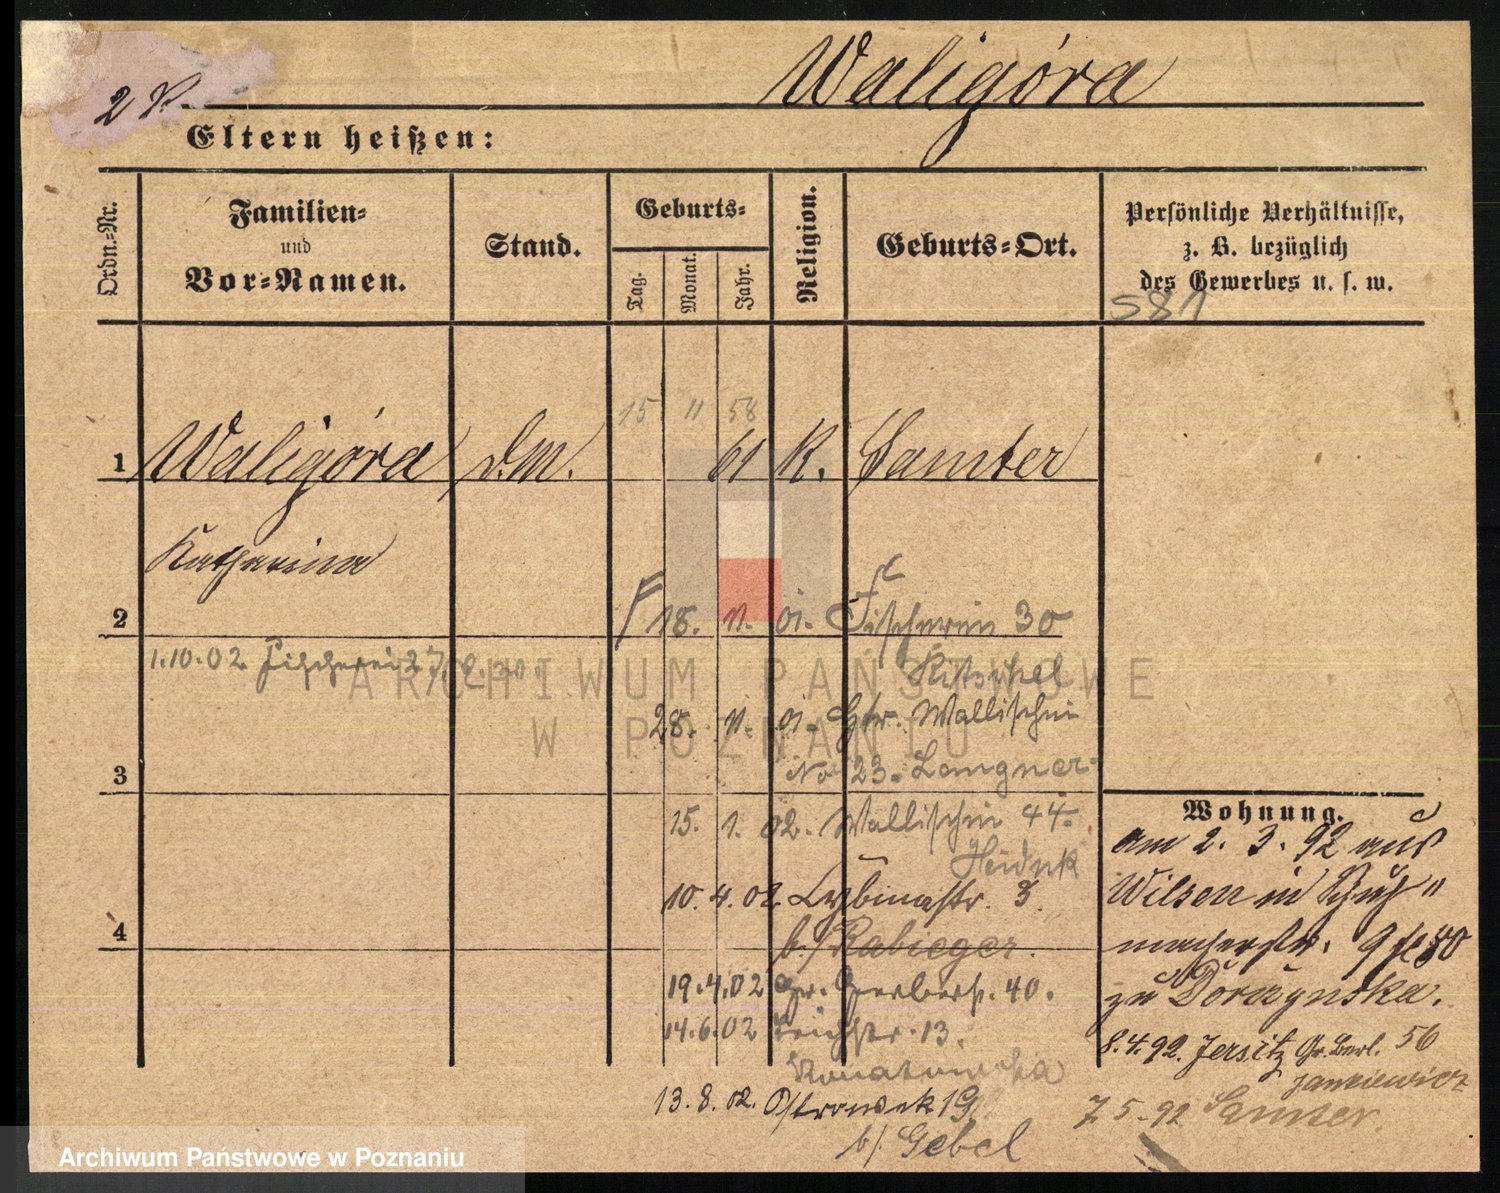 Waligóra
2
Eltern heißen:
Ordn.-Nr.
Familien-
und
Vor-Namen.
Stand.
Geburts-
Tag.
Monat.
Jahr.
Religion.
Geburts-Ort.
Persönliche Verhältnisse,
z. B. bezüglich
des Gewerbes u. s. w.
581
15 11 58
1 Waligóra d. M. 61 K. Samter
Katharina
2
18. 11. 01. Fischerei 30
1.10.02 Fischerei 27
28. 11. 01. Wallischei
3
No 23. Langner
15. 1. 02. Wallischei 44.
Heiduk
10. 4. 02 Lybinastr. 3.
4
b/ Rabieger.
19.4.02 Gr. Gerberst. 40.
14.6.02 Teichstr. 13.
13. 8. 02. Ostrowek 19
b/. Gebel
Wohnung.
am 2. 3. 92 aus
Wilsen in Schuh"
macherstr. 9
zu
8.4.92. Jersitz Gr. Berl. 56
Jankiewicz
7. 5. 92 Samter.
ARCHIWUM PAŃSTWOWE
W POZNANIU
Archiwum Państwowe w Poznaniu